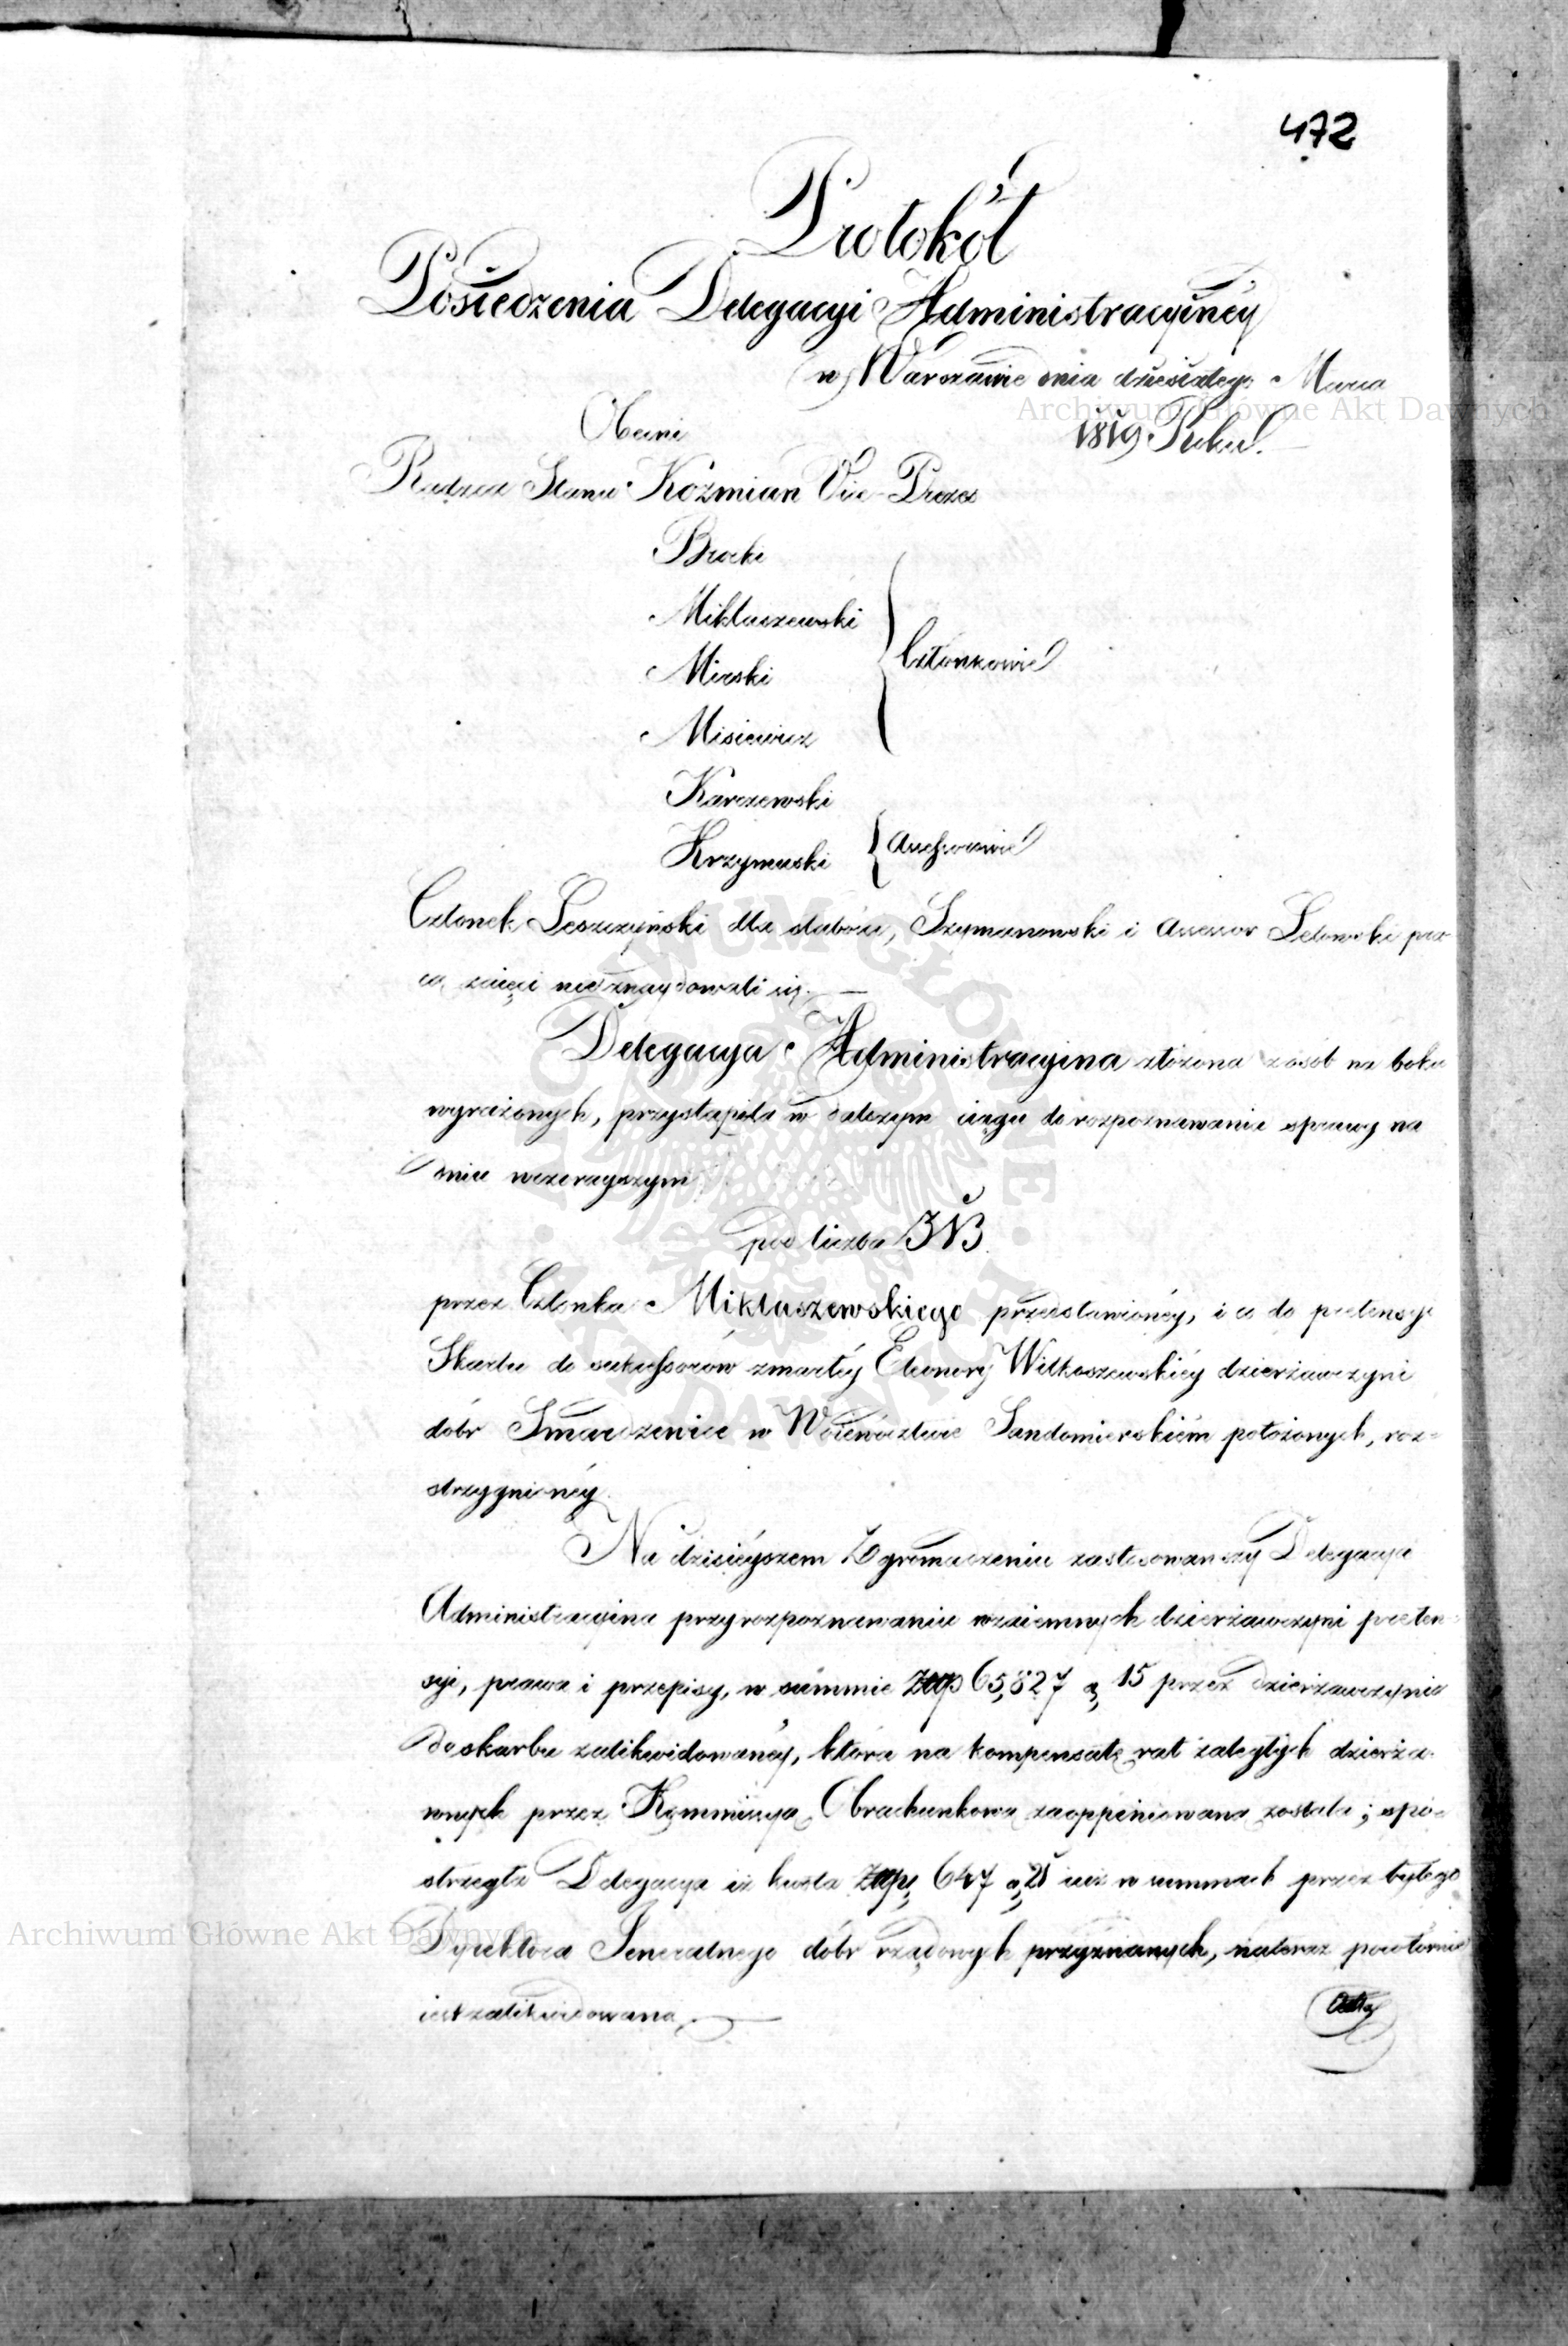 472
Protokół
Posiedzenia Delegacyi Administracyinéy
w Warszawie dnia dziesiątego Marca
1819 Roku.
Obecni
Radzca Stanu Koźmian Vice-Prezes
Brocki
Mikłaszewski
Mirski
Misiewicz
Członkowie
Karczewski
Krzymuski
Assessorowie
Członek Leszczyński dla słabości, Szymanowski i Assessor Letowski pra-
cą zaięci nie znaydowali się.
Delegacya Administracyina złożona z osób na boku
wyrażonych, przystąpiła w dalszym ciągu do rozpoznawania sprawy na
dniu wczorayszym
pod liczbą 313
przez Członka Mikłaszewskiego przedstawionéy, i co do pretensyi
Skarbu do sukcessorów zmarłéy Eleonory Witkoszewskiéy dzierżawczyni
dóbr Smardzewice w Woiewództwie Sandomierskiém położonych, roz-
strzygnionéy.
Na dzisiéyszem Zgromadzeniu zastosowawszy Delegacya
Administracyina przy rozpoznawaniu wzaiemnych dzierżawczyni preten-
syi, prawa i przepisy, w summie Złp 65,827 g 15 przez dzierżawczynią
do skarbu zalikwidowanéy, która na kompensatę rat zaległych dzierża-
wnych przez Kommissyą Obrachunkową zaoppiniowana została; spo-
strzegła Delegacya iż kwota Złp 647 g 21 iuż w summach przez byłego
Dyrektora Generalnego dóbr rządowych przyznanych, nateraz powtórnie
iest zalikwidowana.